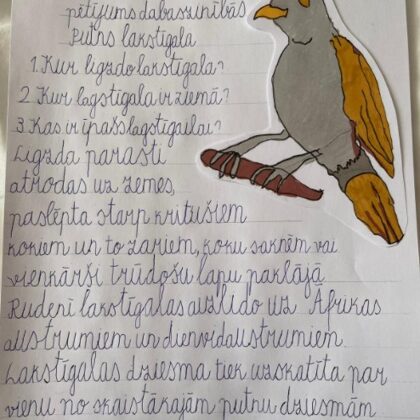 pētījums dabaszinībās
Putns lakstīgala
1. Kur ligzdo lakstīgala?
2. Kur lagstīgala ir ziemā?
3. Kas ir īpašs lagstīgalai?
Ligzda parasti
atrodas uz zemes,
paslēpta starp kritušiem
kokiem un to zariem, koku saknēm vai
vienkārši trūdošu lapu paklājā
Rudenī lakstīgalas aizlido uz Āfrikas
austrumiem un dienvidaustrumiem.
Lakstīgalas dziesma tiek uzskatīta par
vienu no skaistākajām putnu dziesmām